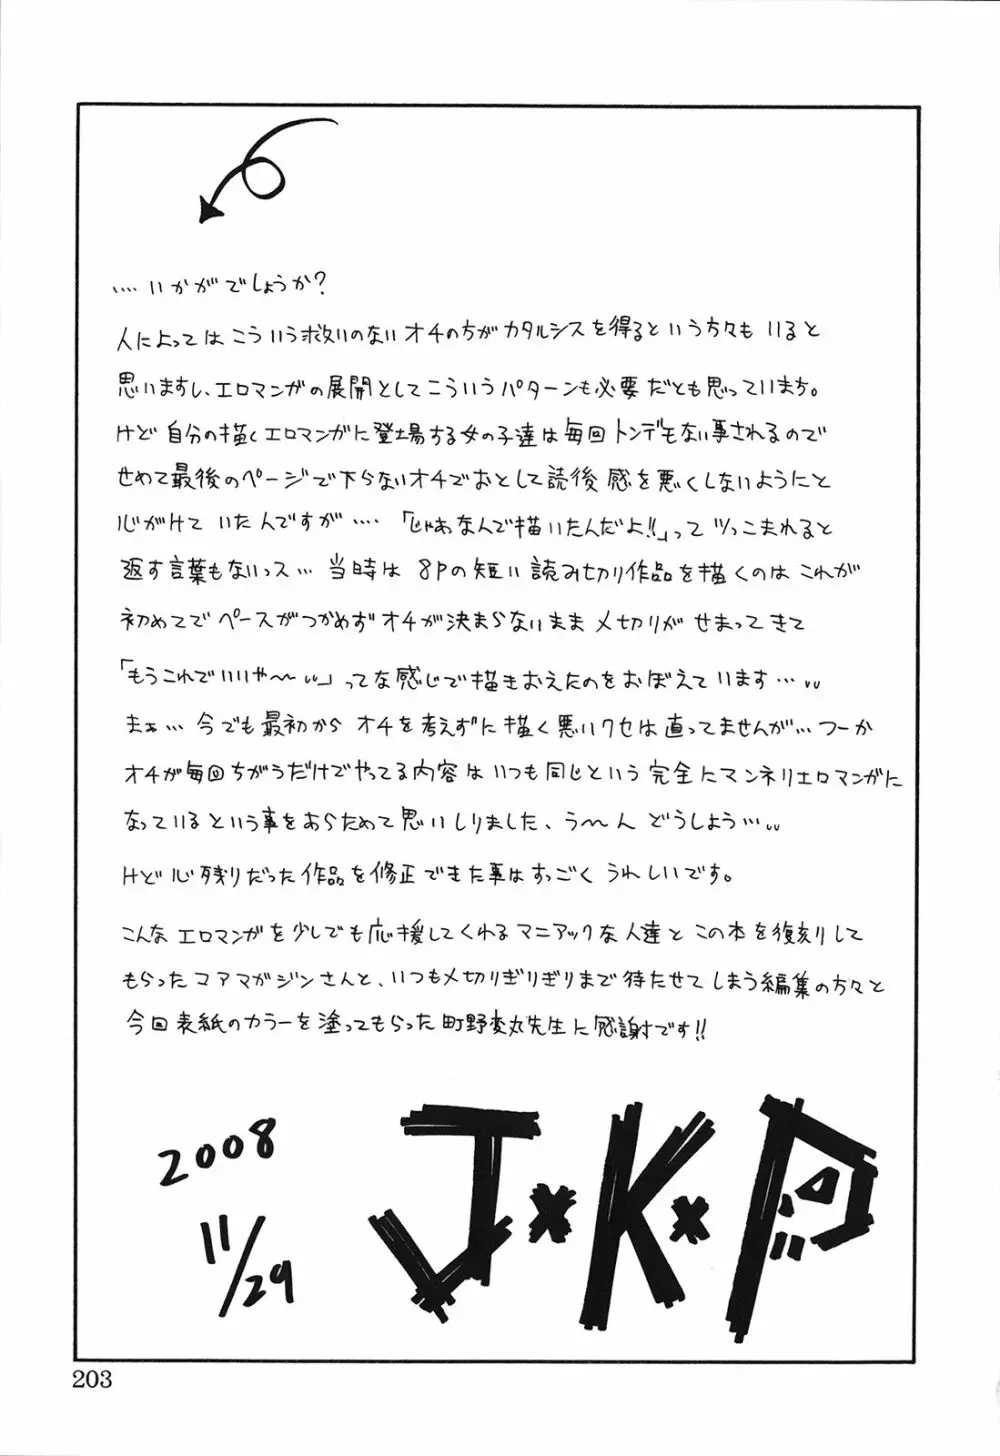 ....いかがでしょうか?
人によってはこういう救いのないオチの方がカタルシスを得るという方々もいると
思いますし、エロマンガの展開としてこういうパターンも必要だとも思っていまち。
けど自分の描くエロマンガに登場する女の子達は毎回トンデモない事されるので
せめて最後のページで下らないオチでおとして読後感を悪くしないようにと
心がけていたんですが....「じゃあなんで描いたんだよ!!」ってツッこまれると
返す言葉もないっス...当時は8Pの短い読み切り作品を描くのはこれが
初めてでペースがつかめずオチが決まらないままメ切りがせまってきて
「もうこれでいいや〜い」ってな感じで描きおえたのをおぼえています...い
まぁ...今でも最初からオチを考えずに描く悪いクセは直ってませんが...つーか
オチが毎回ちがうだけでやってる内容はいつも同じという完全にマンネリエロマンガに
なっているという事をあらためて思いしりました、う〜んどうしよう...い
けど心残りだった作品を修正できた事はすっごくうれしいです。
こんなエロマンガを少しでも応援してくれるマニアックな人達とこの本を復刻して
もらったコアマガジンさんと、いつもメ切りぎりぎりまで待たせてしまう編集の方々と
今回表紙のカラーを塗ってもらった町野変丸先生に感謝です!!
2008
11/29
J×K×P
203